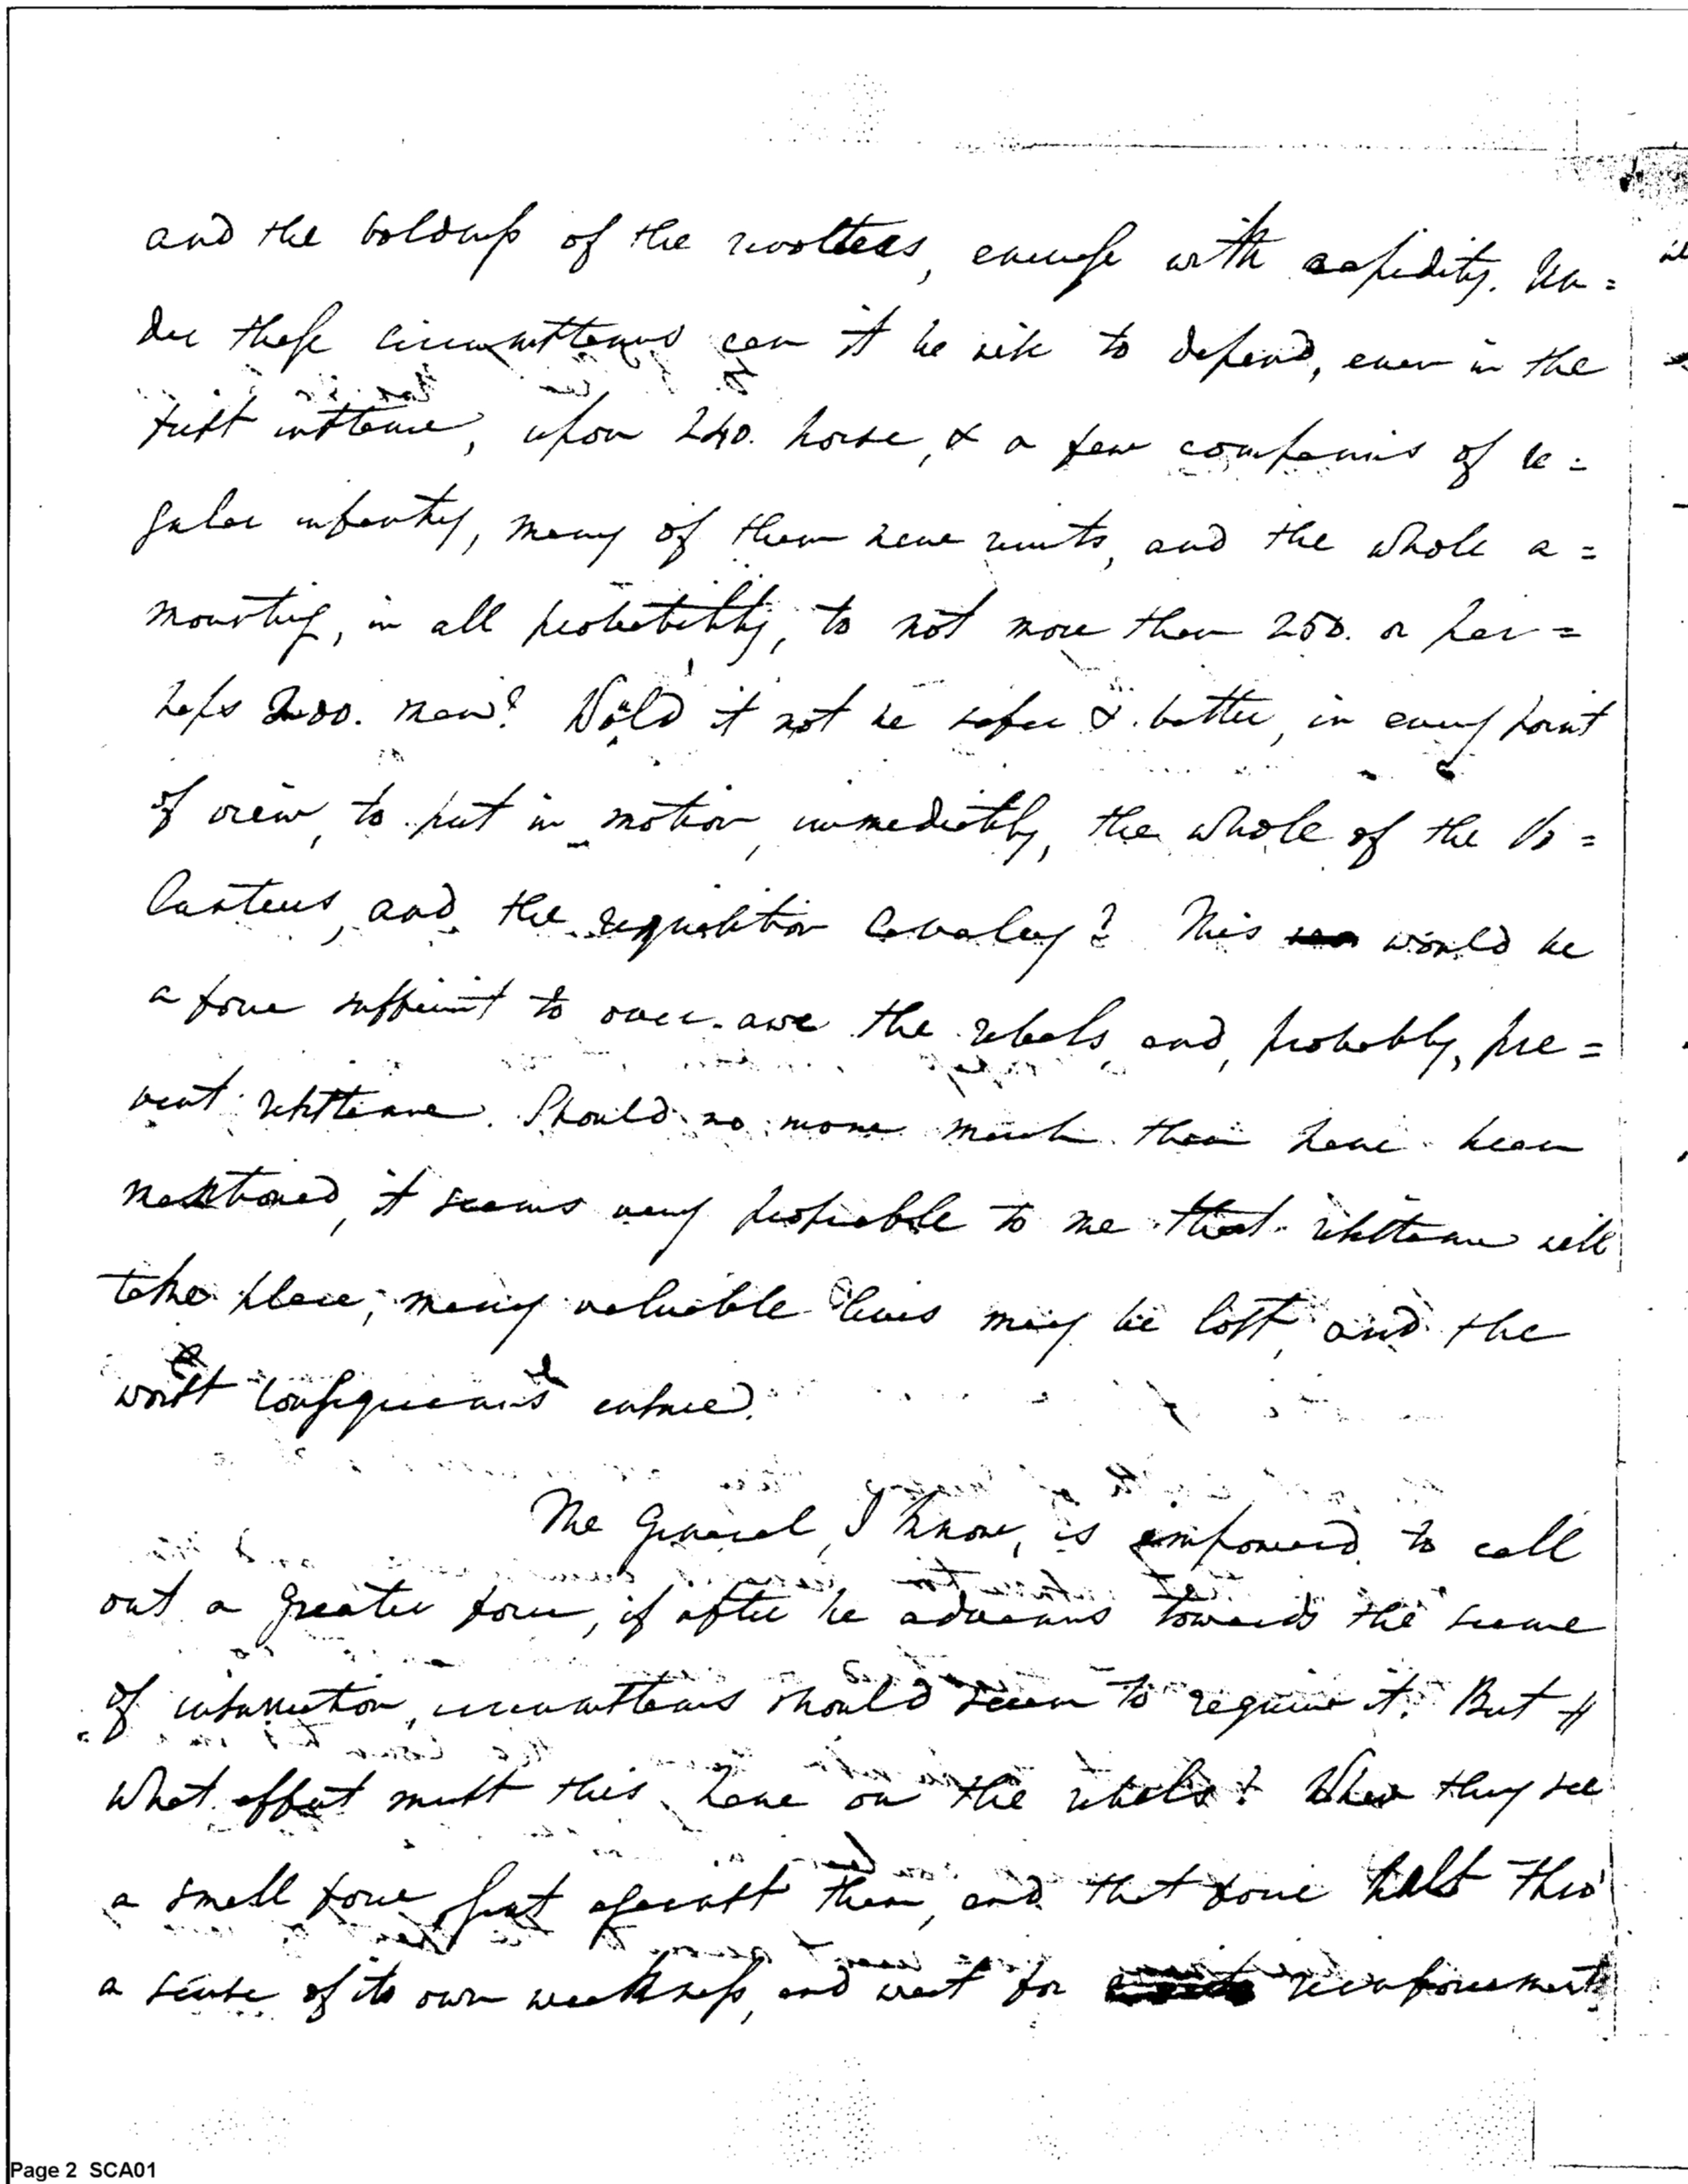 and the boldness of the revolters, encrease with rapidity. Un=
der these circumstances can it be wise to depend, even in the
first instance, upon 240. horse, & a few companies of re=
gular infantry, many of them new recruits, and the whole a=
mounting, in all probability, to not more than 250. or per=
haps 200. men? Would it not be safer & better, in every point
of view, to put in motion, immediately, the whole of the Vo=
lunteers, and the requisition Cavalry? This would be
a force sufficient to over-awe the rebels, and, probably, pre=
vent resistance. Should no more march than have been
mentioned, it seems very probable to me that resistance will
take place; many valuable lives may be lost, and the
worst consequences ensue.
The General, I know, is empowered to call
out a greater force, if after he advances towards the scene
of insurrection, circumstances should seem to require it. But
what effect must this have on the rebels? When they see
a small force sent against them, and that force halt thro'
a sense of its own weakness, and wait for reinforcements
Page 2 SCA01